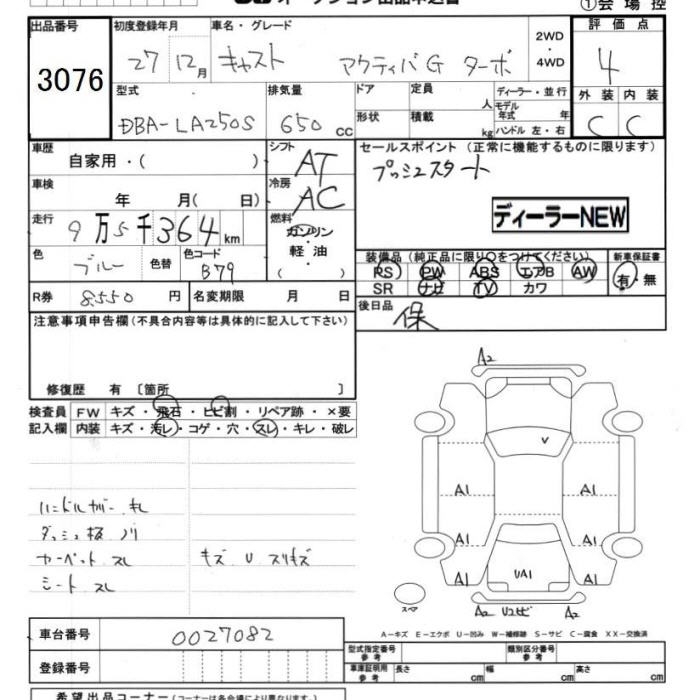 ①会場控
出品番号 3076
初度登録年月 27 12月
車名・グレード キャスト アクティバG ターボ
2WD・4WD
評価点 4
外装 C 内装 C
型式 DBA-LA250S
排気量 650 cc
ドア 形状
定員 人
積載 kg
ディーラー・並行
モデル年式 年
ハンドル 左・右
車歴 自家用・( )
シフト AT
セールスポイント (正常に機能するものに限ります)
プッシュスタート
車検 年 月( 日)
冷房 AC
ディーラーNEW
走行 9万5千364km
燃料 ガソリン・軽油 ( )
色 ブルー 色替 色コード B79
装備品 (純正品に限り○をつけてください)
新車保証書 有・無
PS PW ABS エアB AW
SR ナビ TV カワ
R券 8,550 円 名変期限 月 日
後日品 保
注意事項申告欄 (不具合内容等は具体的に記入して下さい)
修復歴 有 〔箇所 〕
検査員記入欄
FW キズ・飛石・ヒビ割・リペア跡・×要
内装 キズ・汚レ・コゲ・穴・スレ・キレ・破レ
A2
V
A1 A1
A1 A1
A1 UA1 A1
A2 Uヱビ A2
スペア
ハンドルカバー キレ
ダッシュ板 ノリ
カーペット スレ
シート スレ
キズ U スリキズ
A-キズ E-エクボ U-凹み W-補修跡 S-サビ C-腐食 XX-交換済
車台番号 0027082
登録番号
型式指定番号 参考
類別区分番号 参考
車庫証明用 参考 長さ cm 幅 cm 高さ cm
希望出品コーナー (コーナーは各会場により異なります)